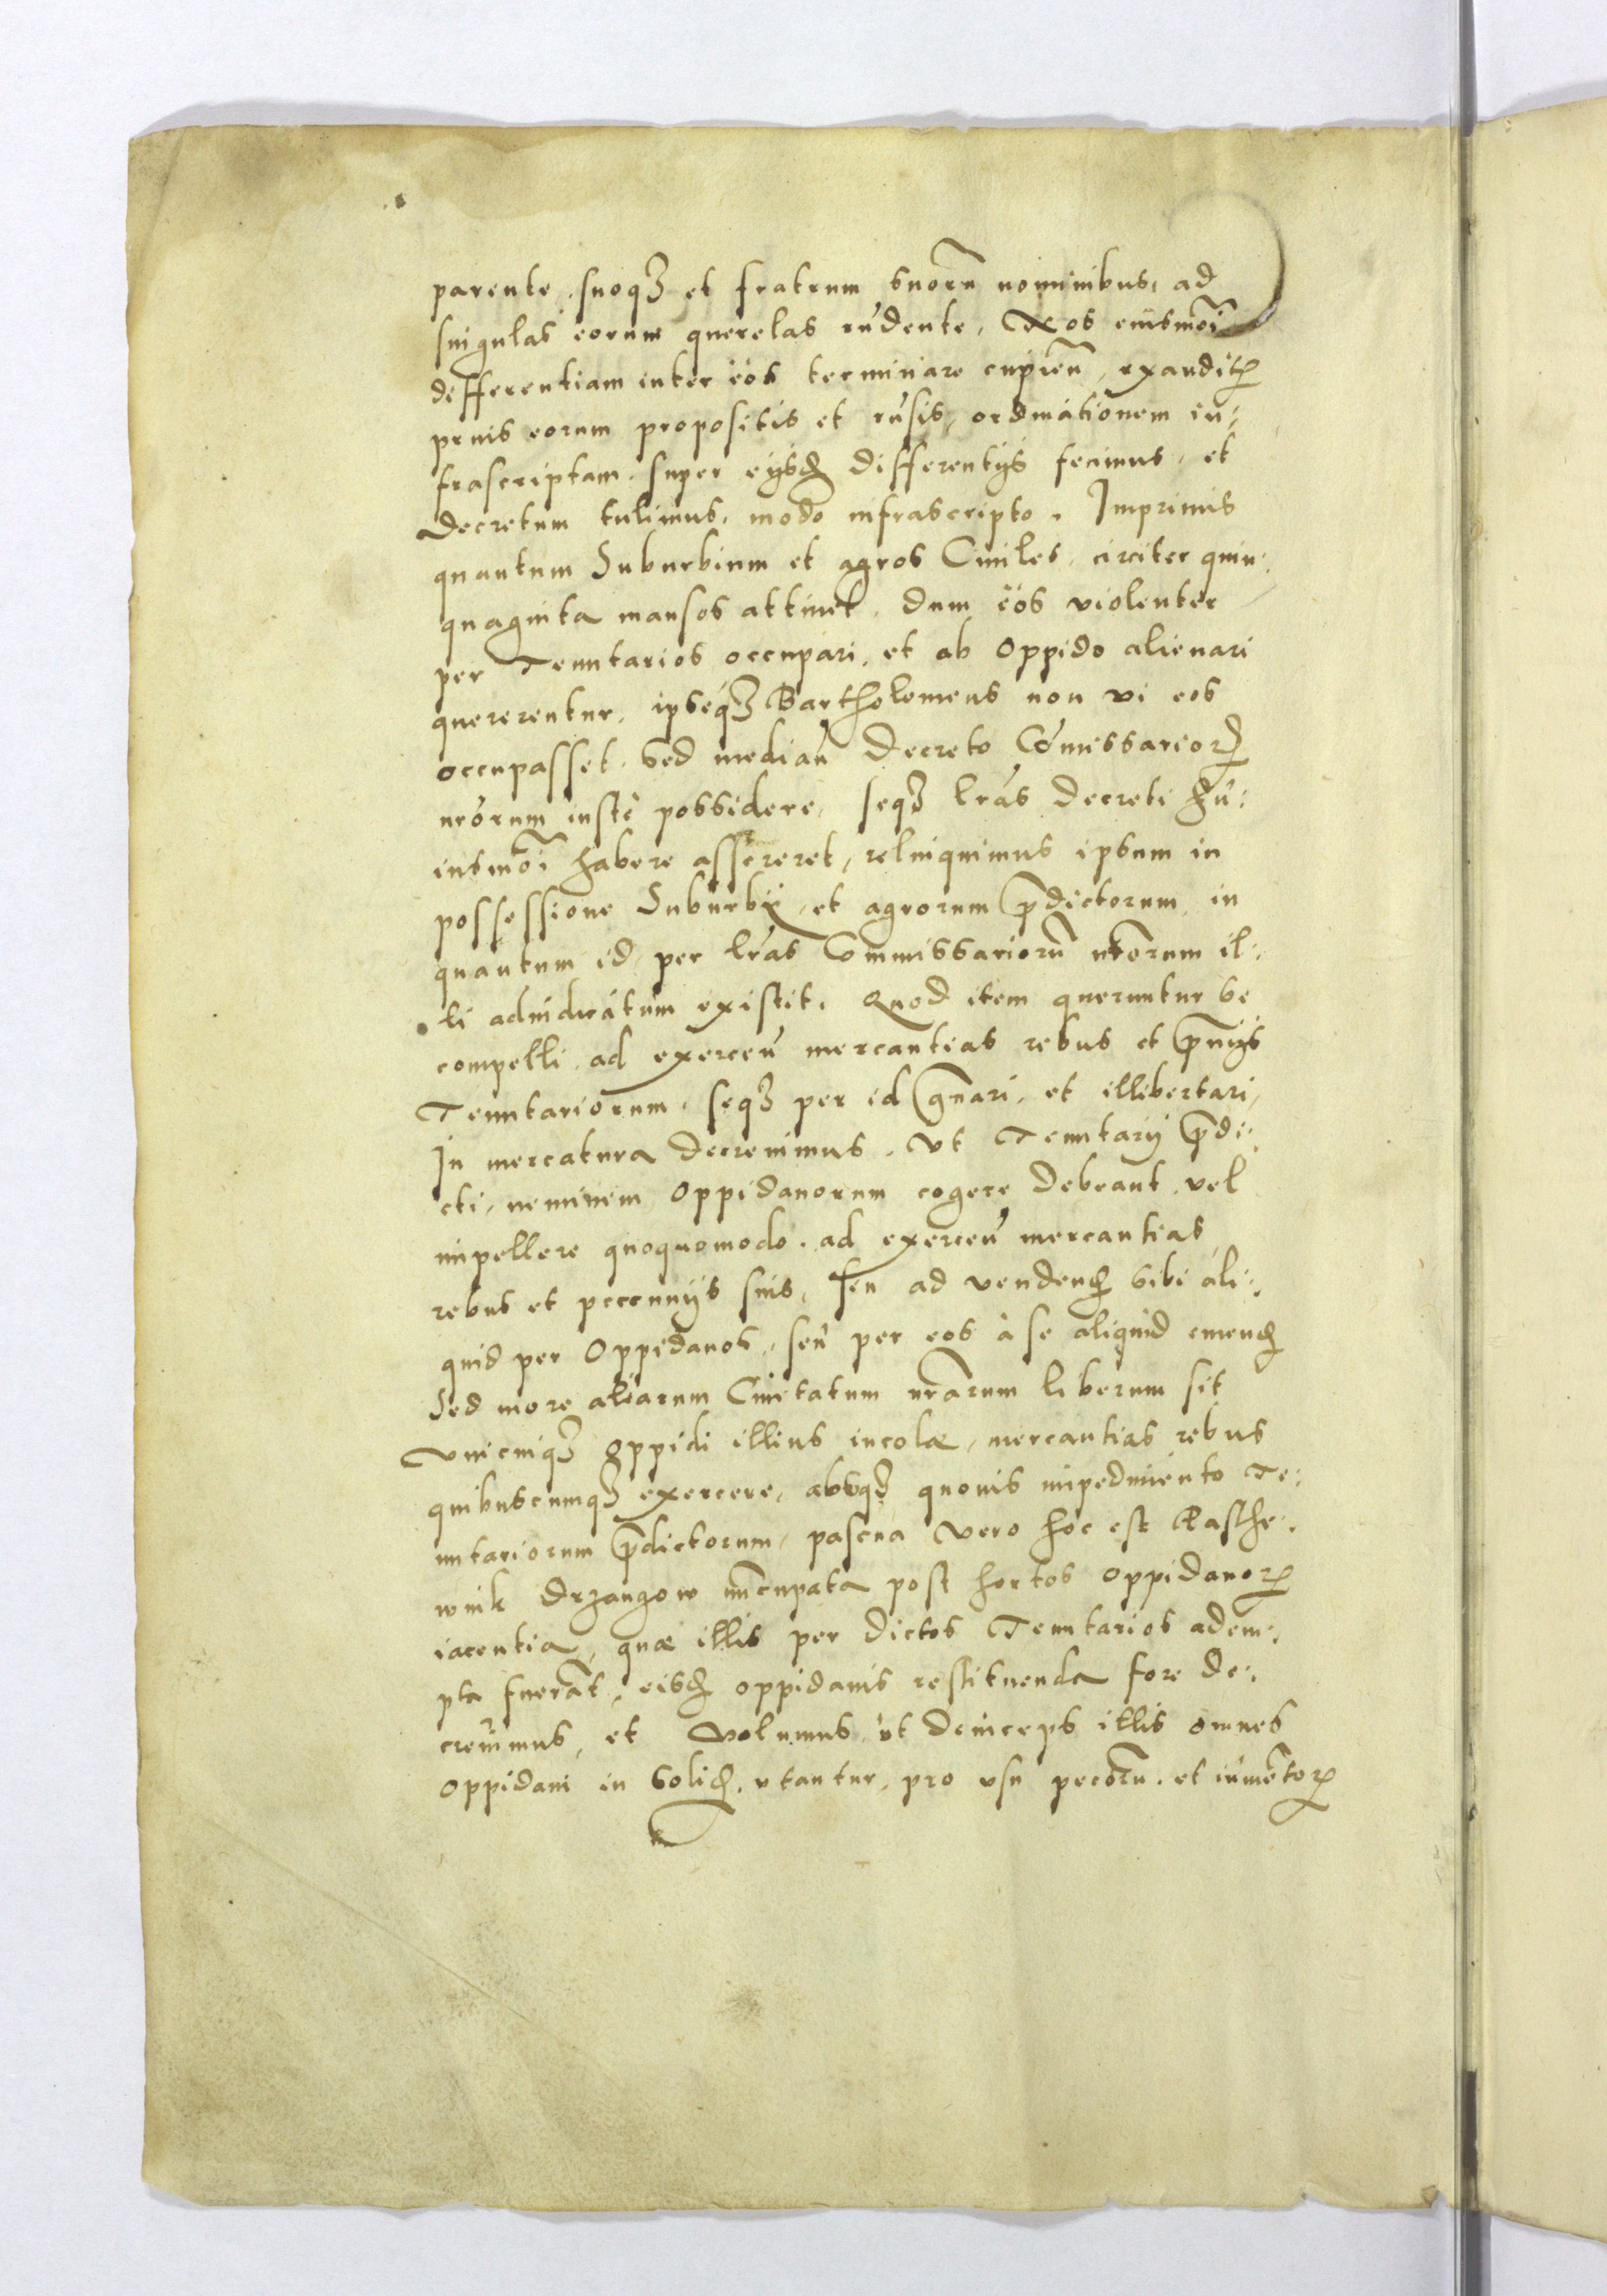 parente, suoqȝ et fratrum suorū nominibus, ad
singulas eorum querelas rn̄dente, Nos eiusmōi
differentiam inter eos terminare cupien̄, exauditꝭ
prius eorum propositis et rn̄sis, ordinationem in-
frascriptam super eysdē differentijs fecimus, et
decretum tulimus, modo infrascripto. Imprimis
quantum Suburbium et agros Ciuiles, circiter quin-
quaginta mansos attinet, dum eos violenter
per Tenutarios occupari, et ab oppido alienari
quererentur, ipseqȝ Bartholomeus non vi eos
occupasset, sed median̄ Decreto Cōmissarioꝝ
nr̄orum iuste possidere, seqȝ lr̄as decreti hu-
iusmōi habere assereret, relinquimus ipsum in
possessione Suburbij, et agrorum p̄dictorum, in
quantum id per lr̄as Commissariorū nr̄orum il-
li adiudicatum existit. Quod item queruntur se
compelli ad exercen̄ mercantias rebus et p̄nijs
Tenutariorum, seqȝ per id gr̄auari, et illibertari,
In mercatura decreuimus, vt Tenutarij p̄di-
cti, neminem oppidanorum cogere debeant vel
impellere quoquomodo, ad exercen̄ mercantias
rebus et peccunijs suis, seu ad vendendꝭ sibi ali-
quid per oppidanos, seu per eos à se aliquid emendꝭ
Sed more aliarum Ciuitatum nr̄arum liberum sit
vnicuiqȝ oppidi illius incolæ, mercantias rebus
quibuscumqȝ exercere, absqȝ quouis impedimento Te-
nutariorum p̄dictorum, pascua vero hoc est Rasthe-
wnik Drzanzow nūcupata post hortos oppidanoꝝ
iacentia, quæ illis per dictos Tenutarios adem-
pta fuerāt, eisdē oppidanis restituenda fore de-
creuimus, et volumus vt deinceps illis omnes
oppidani in solidꝭ, vtantur, pro vsu pecorū et iumētoꝝ